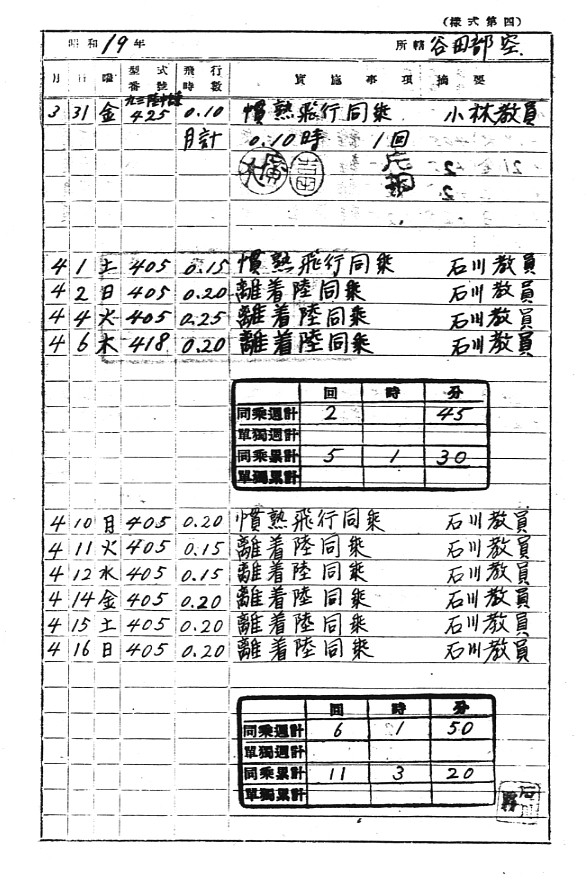 (樣式第四)
昭和19年 所轄 谷田部空
月 日 曜 型式番號 飛行時數 實施事項 摘要
3 31 金 425 0.10 慣熟飛行同乘 小林教員
月計 0.10時 1回
4 1 土 405 0.15 慣熟飛行同乘 石川教員
4 2 日 405 0.20 離着陸同乘 石川教員
4 4 火 405 0.25 離着陸同乘 石川教員
4 6 木 418 0.20 離着陸同乘 石川教員
回 時 分
同乘週計 2 45
單獨週計
同乘累計 5 1 30
單獨累計
4 10 月 405 0.20 慣熟飛行同乘 石川教員
4 11 火 405 0.15 離着陸同乘 石川教員
4 12 水 405 0.15 離着陸同乘 石川教員
4 14 金 405 0.20 離着陸同乘 石川教員
4 15 土 405 0.20 離着陸同乘 石川教員
4 16 日 405 0.20 離着陸同乘 石川教員
回 時 分
同乘週計 6 1 50
單獨週計
同乘累計 11 3 20
單獨累計